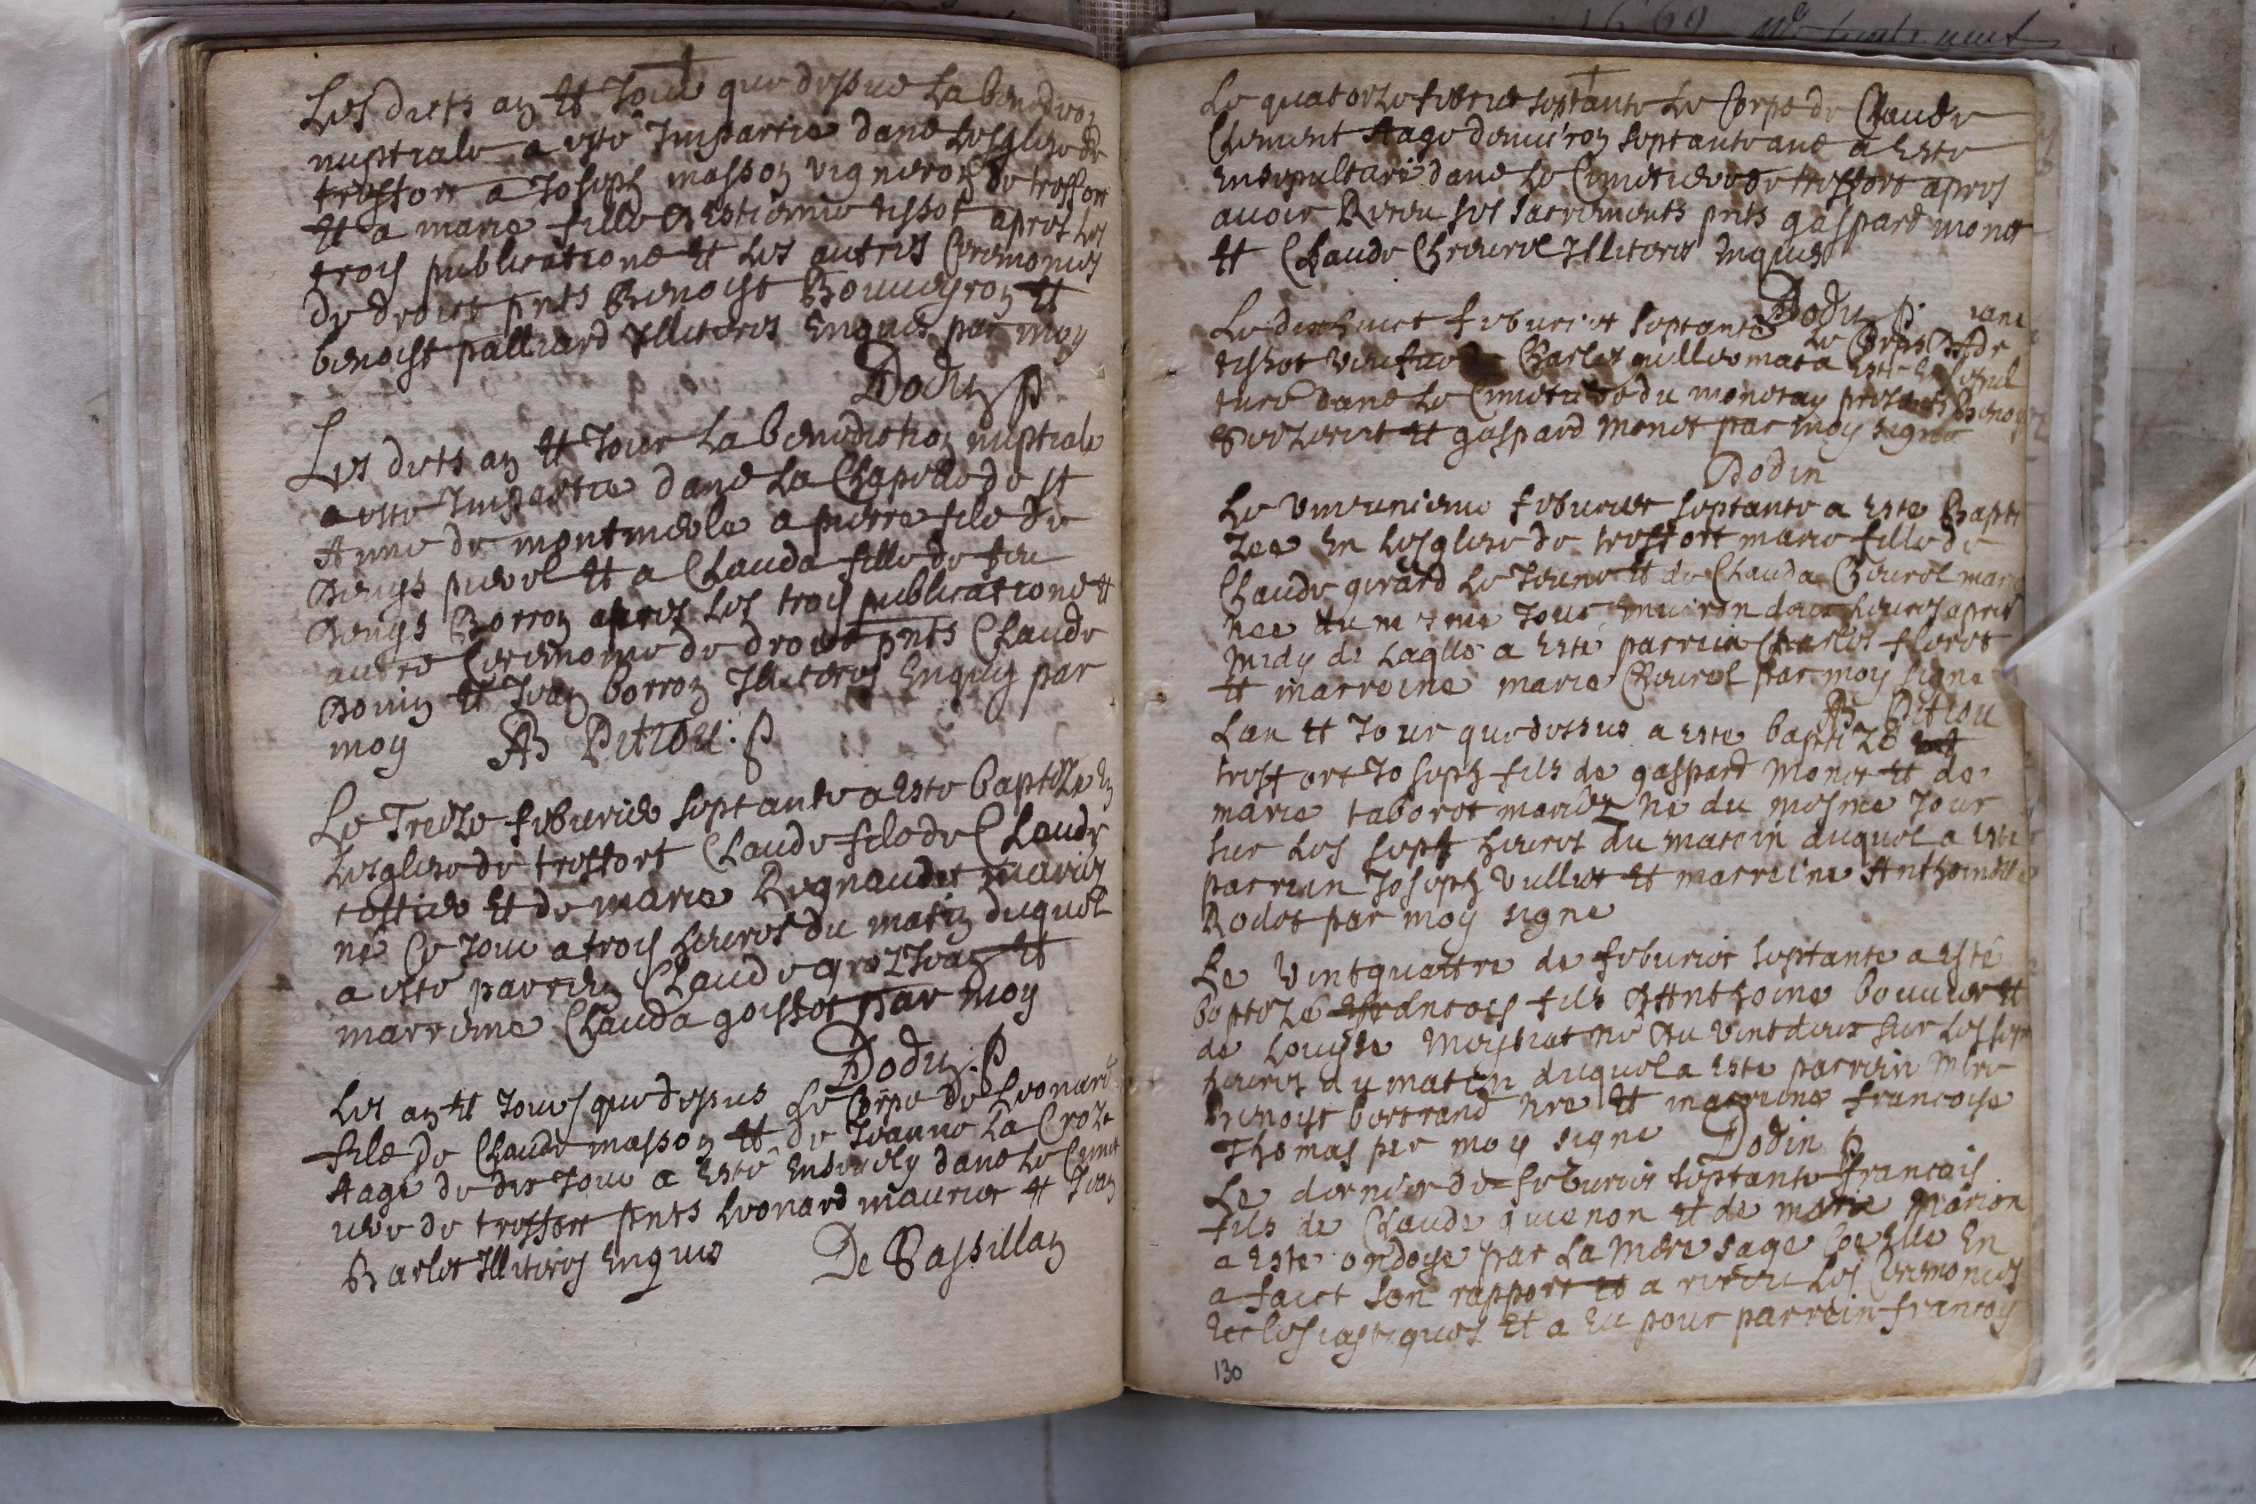 Les dicts an et Jour que dessus la benediction
nuptiale a esté Impartie dans Lesglise de
tressort a Joseph masson vigneron de tressort
et a marie fille destienne tissot apres les
trois publications et les autres Ceremonies
de droict pnts Benoist Bouueyron et
benoist palliard Illiteres enquis par moy
Dodin p
Les dicts an et Jour la benediction nuptiale
a esté Impartie dans La Chapelle de st
Anne de montmerle a pierre fils de
Denys et a Clauda fille de feu
Denys Borron apres les trois publications et
autre Ceremonie de droict pnts Claude
et Jean borron Illiteres Enquis par
moy B Pitiou : p
Le Treize feburier septante a esté baptizé En
Lesglise de tressort Claude fils de Claude
et de marie Regnaudet mariez
né Ce Jour a trois heures du matin duquel
a esté parrein Claude grozJean et
marreine Clauda goissot par moy
Dodin : p
Les an et Jours que dessus le Corps de Leonard
fils de Claude masson et de Jeanne La Croze
Aagé de dix Jour a esté Ensevely dans le Cimet
iere de tressort pnts Leonard maurier et Jean
Barlet Illiteres Enquis De Bassillan
Le quatorze feburier septante le Corps de Claude
Clement Aagé denuiron septante ans a Esté
Ensepulturé dans le Cimetiere de tressort apres
auoir Receu ses sacrements pnts gaspard monet
et Claude Cheurel Illiteres Enquis
Dodin p.
Le dixhuict feburier septante le Corps de Jane
tissot veufue de Charles guillermat a esté Ensepul
turé dans le Cimetiere du monetay presents Benoy
et gaspard monet par moy signé
Dodin
Le vintuniesme feburier septante a Esté Bapti
zee En Lesglise de tressort marie fille de
Claude girard le Jeune et de Clauda Cheurel mariez
nee du mesme Jour enuiron deux heures apres
midy de Laqlle a esté parrein Charles floret
et marreine marie Cheurel par moy signé
B Pitiou
Lan et Jour que dessus a esté baptizé
tressort Joseph fils de gaspard monet et de
marie taboret mariez né du mesme Jour
sur les sept heures du matin duquel a esté
parrein Joseph Vulliet et marreine Anthoinette
Rodet par moy signé
Le vintquattre de feburier septante a esté
baptizé francois fils d'Anthoine bouuier et
de Louyse Meystrat né du vintdeux sur les sept
heures du matin duquel a esté parrein Mtre
benoist bertrand nre et marreine francoise
Thomas par moy signé Dodin p
Le dernier de feburier septante francois
fils de Claude guienon et de marie marion
a esté ondoyé par la mere sage Coe elle En
a faict son rapport et a receu les Ceremonies
Ecclesiastiques et a Eu pour parrein francoys
130